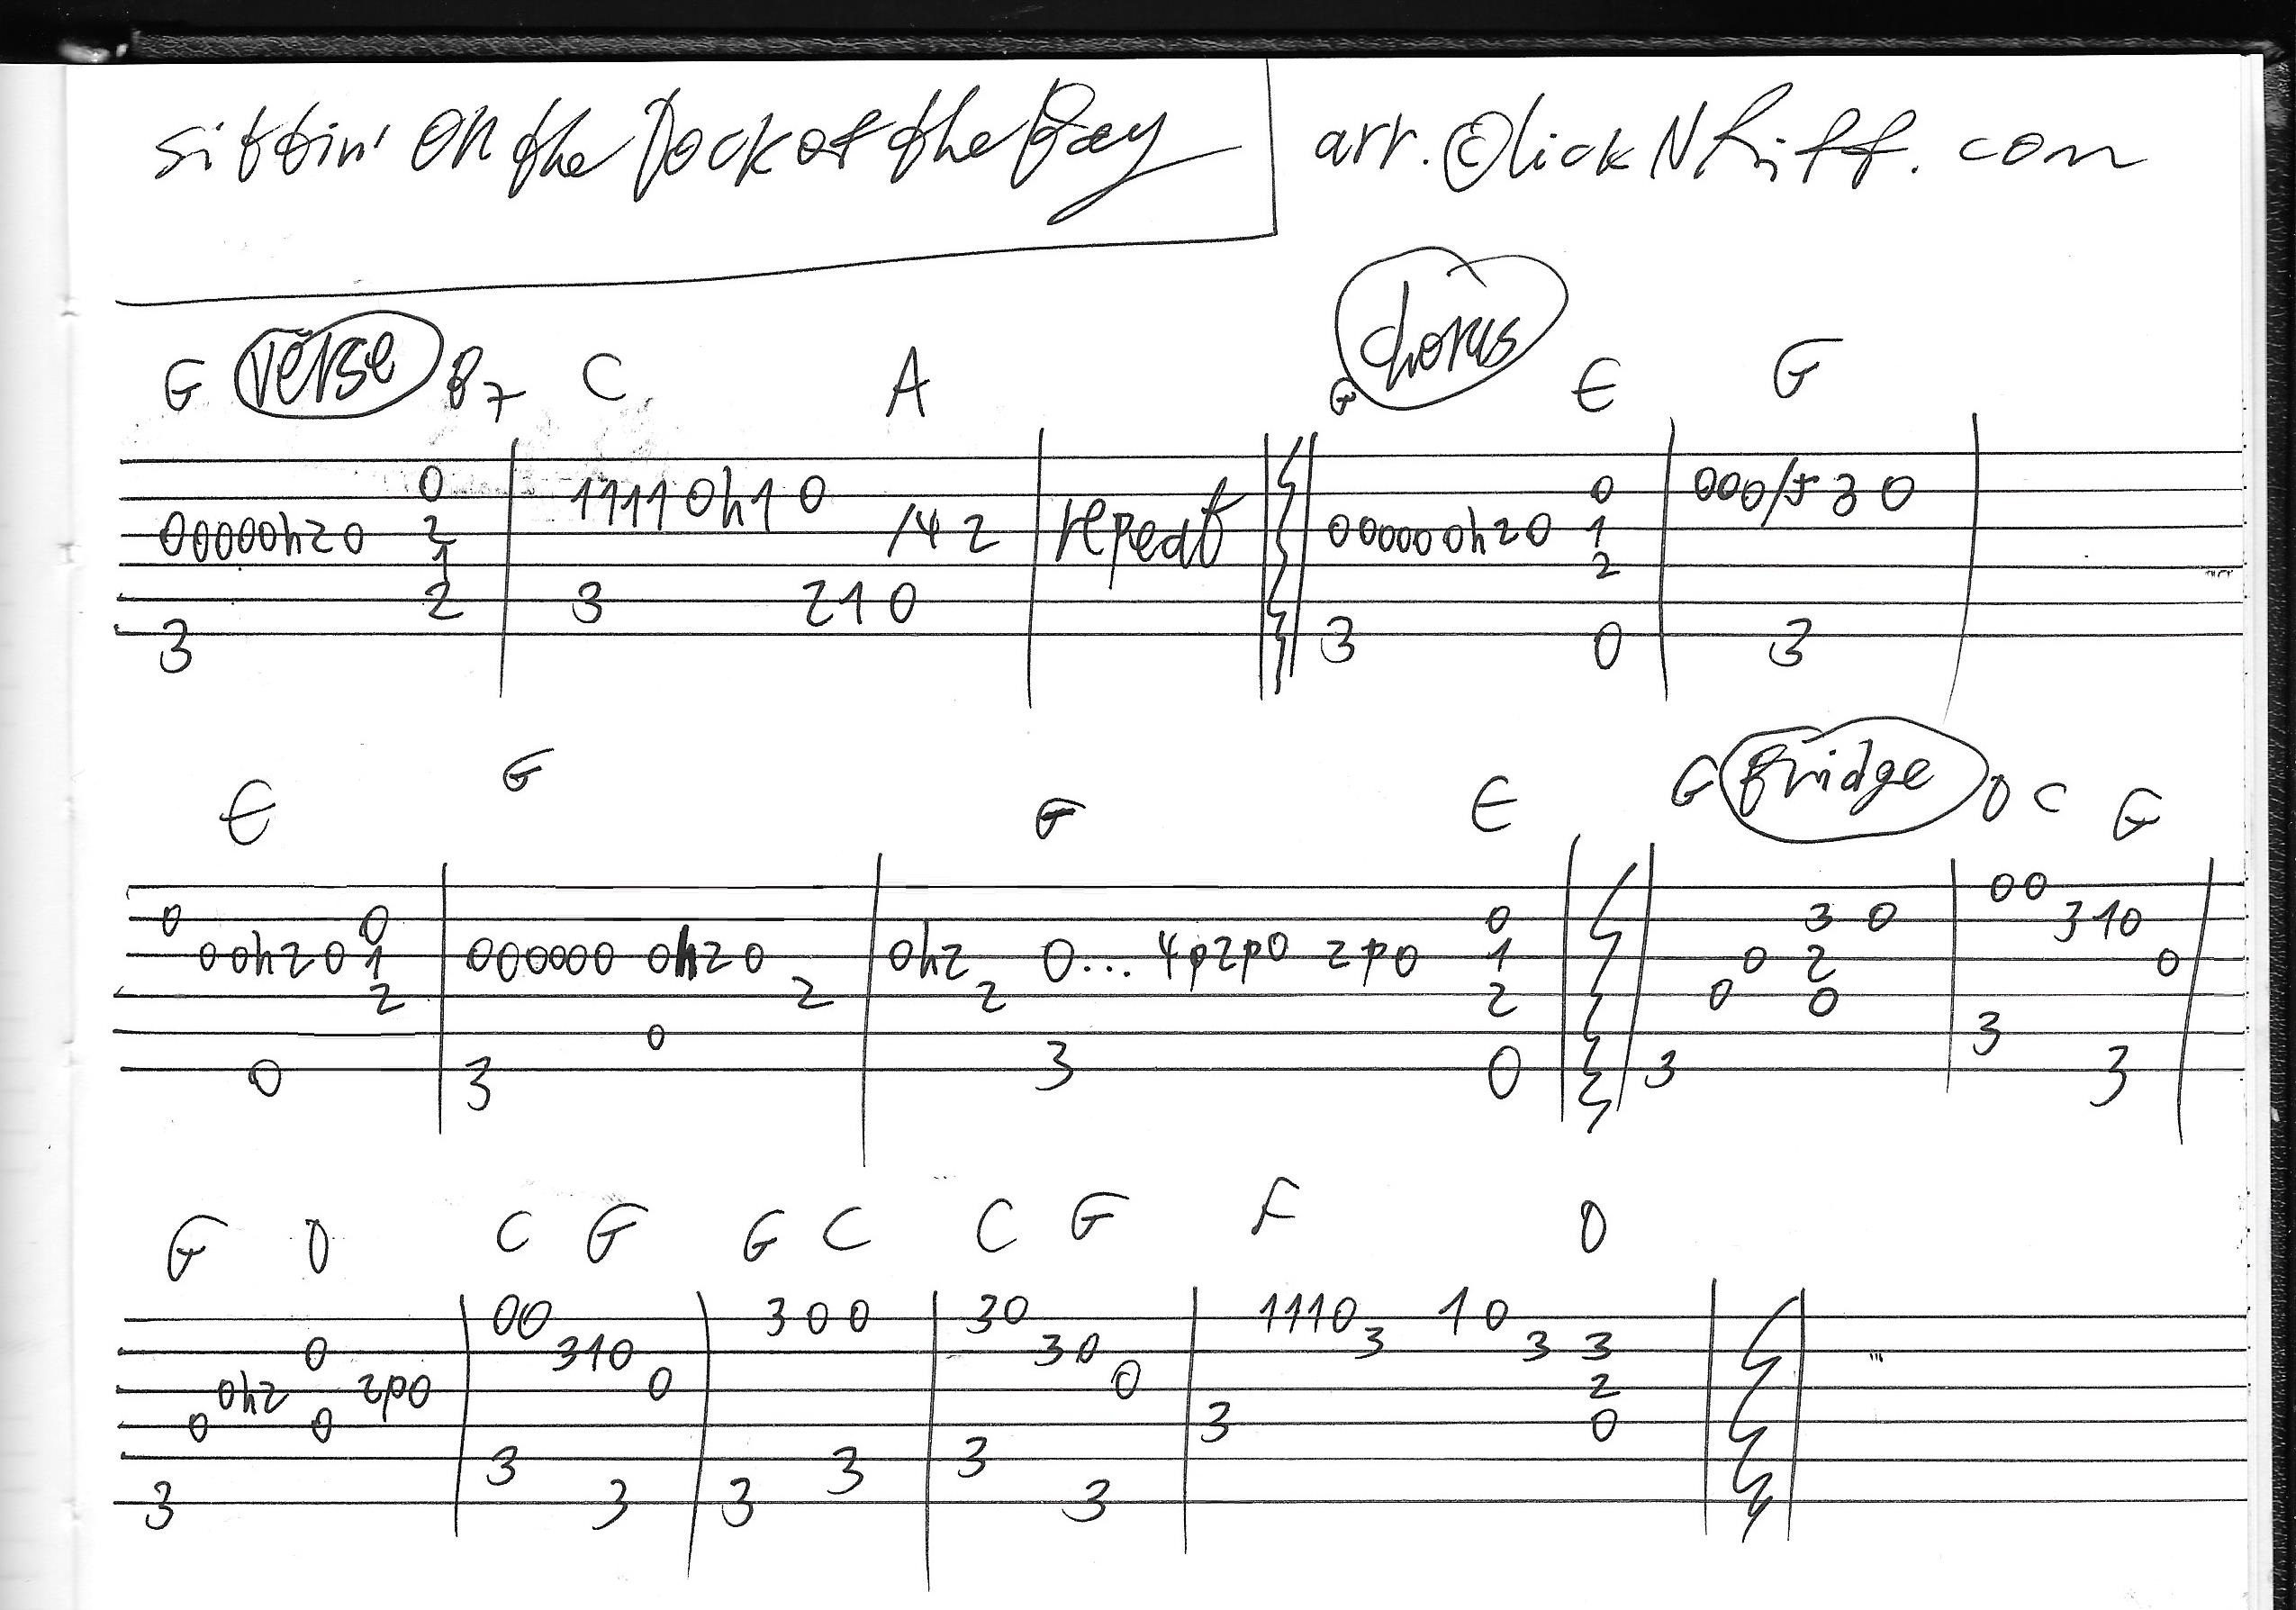 sittin' on the Dock of the Bay
arr. © lickNRiff.com
G verse B7 C A G chorus E G
0 0 000/5 3 0
1111 0h1 0
00000h20 2 /4 2 repeat 000000h20 1
1 2
2 3 210
3 3 0 3
E G G E G Bridge D C G
00
0 0 0 3 0 310
00h20 1 000000 0h20 0h2 0... 4p2p0 2p0 1 0 2 0
2 2 2 2 0 0
0 3
0 3 3 0 3 3
G D C G G C C G F D
00 300 30 1110 10
0 310 30 3 3 3
0h2 2p0 0 0 2
0 0 3 0
3 3 3
3 3 3 3